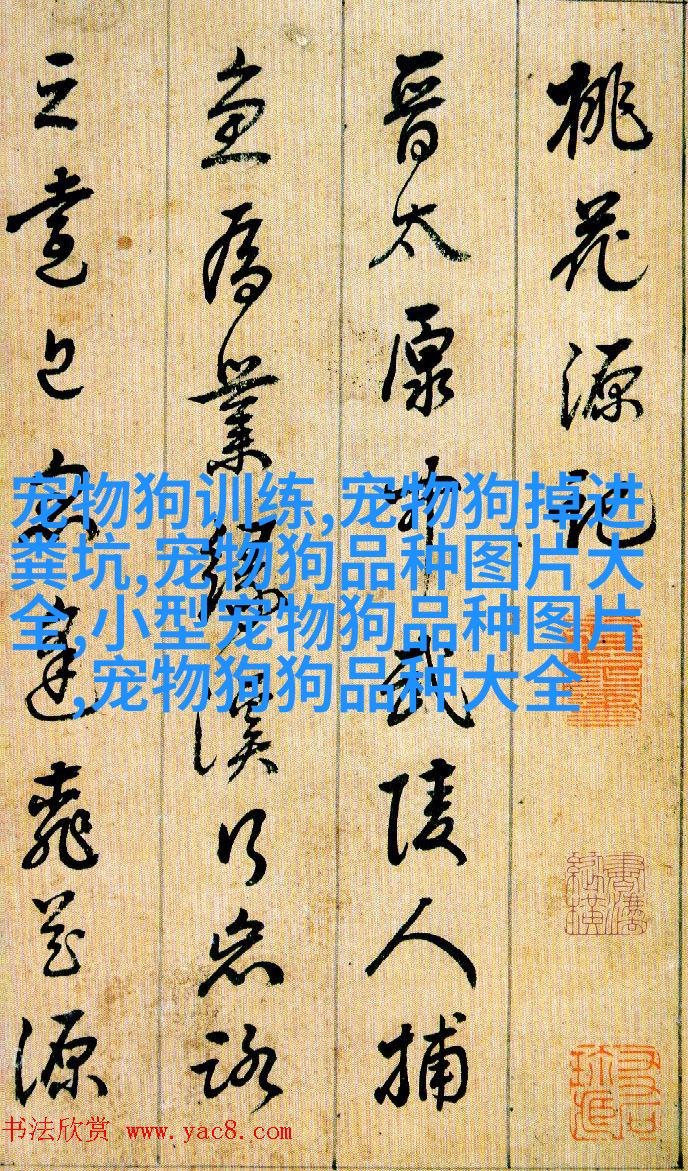 桃花源記
晉太原中武陵人捕
魚為業緣溪行忘路
之遠近忽逢桃花源
宠物狗训练,宠物狗掉进
粪坑,宠物狗品种图片大
全,小型宠物狗品种图片
,宠物狗狗品种大全
书法欣赏 www.yac8.com